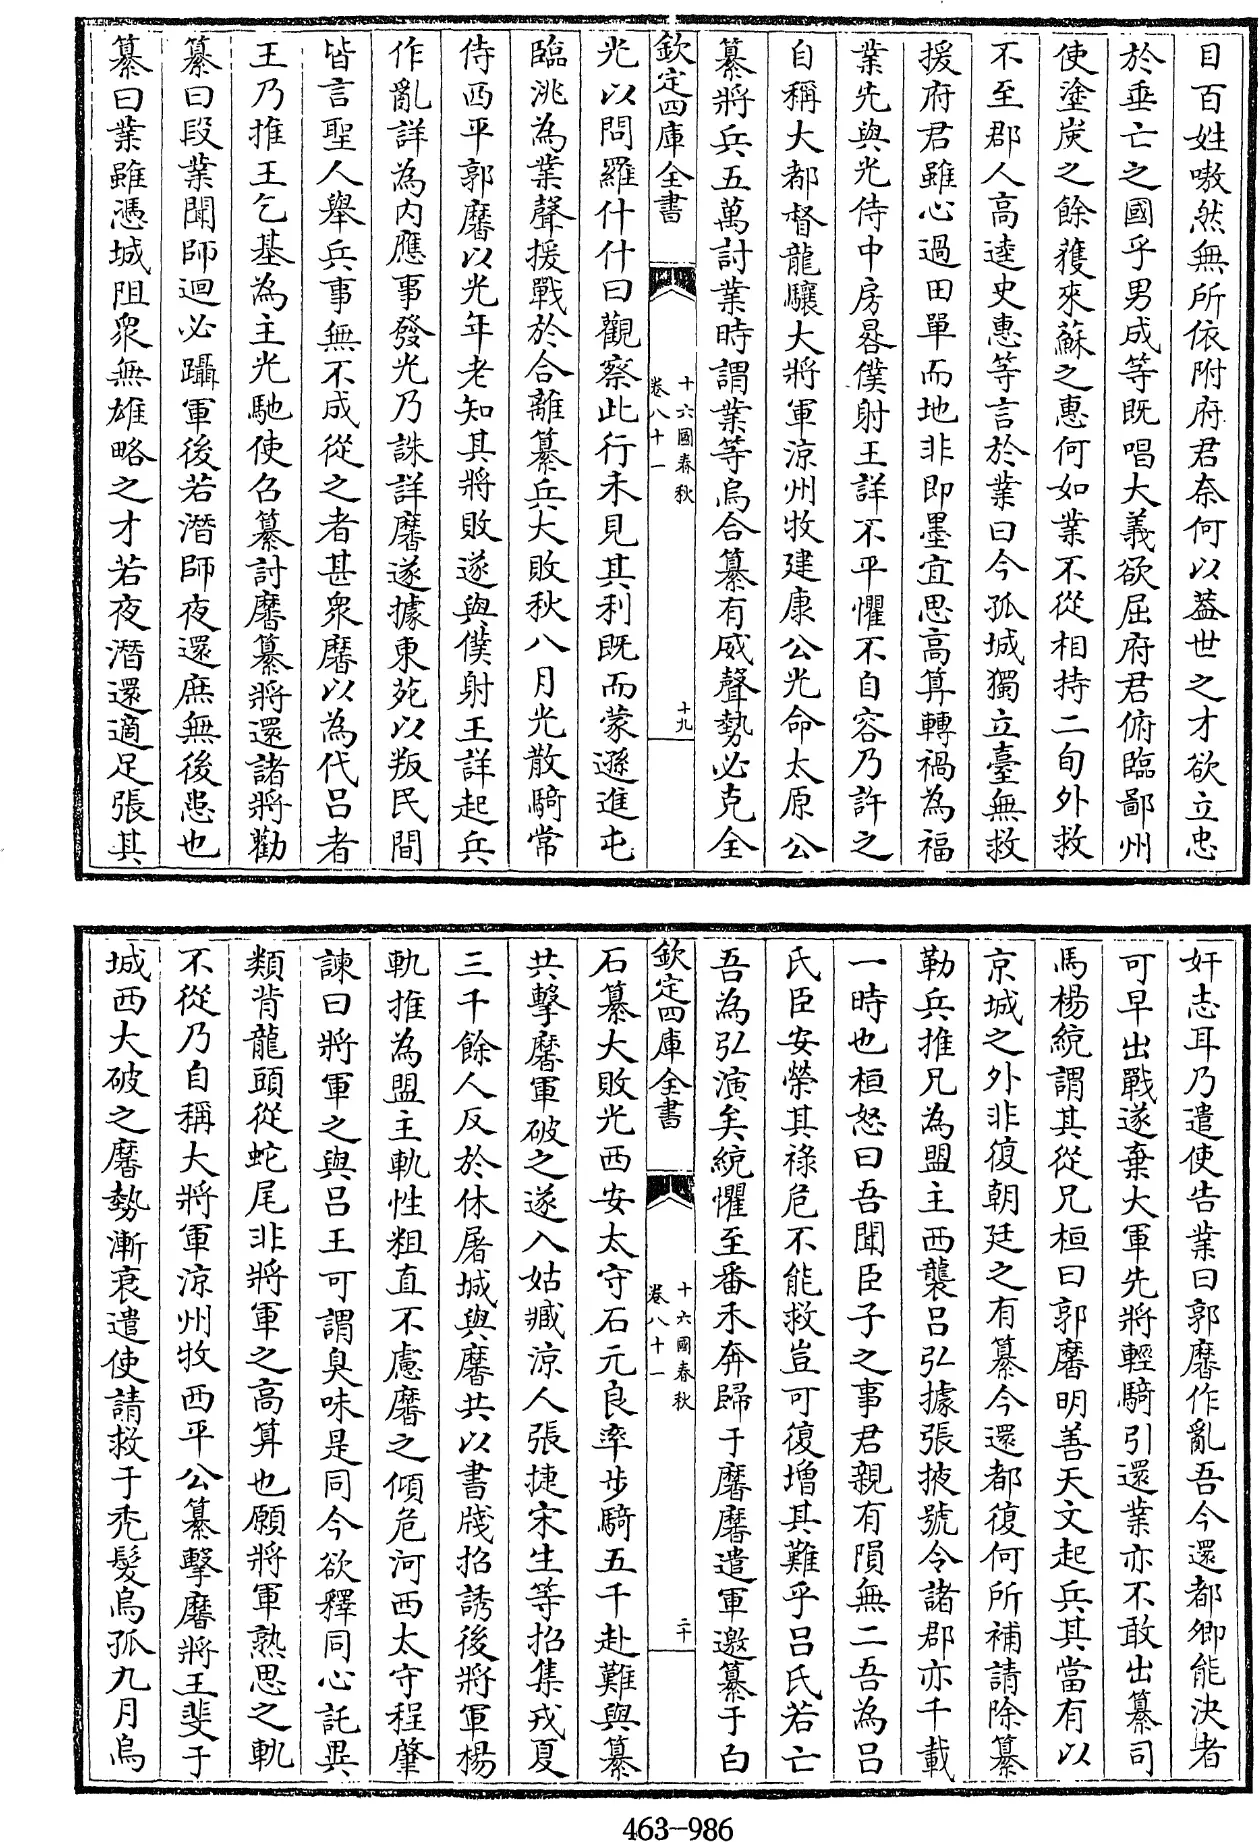 目百姓嗷然無所依附府君奈何以葢世之才欲立忠
於垂亡之國乎男成等既唱大義欲屈府君俯臨鄙州
使塗炭之餘獲來蘇之惠何如業不從相持二旬外救
不至郡人高逵史惠等言於業曰今孤城獨立臺無救
援府君雖心過田單而地非即墨宜思高算轉禍為福
業先與光侍中房晷僕射王詳不平懼不自容乃許之
自稱大都督龍驤大將軍涼州牧建康公光命太原公
纂將兵五萬討業時謂業等烏合纂有威聲勢必克全
欽定四庫全書
十六國春秋
卷八十一
十九
光以問羅什什曰觀察此行未見其利既而蒙遜進屯
臨洮為業聲援戰於合離纂兵大敗秋八月光散騎常
侍西平郭黁以光年老知其將敗遂與僕射王詳起兵
作亂詳為內應事發光乃誅詳黁遂據東苑以叛民間
皆言聖人舉兵事無不成從之者甚衆黁以為代呂者
王乃推王乞基為主光馳使召纂討黁纂將還諸將勸
纂曰段業聞師迴必躡軍後若潛師夜還庶無後患也
纂曰業雖憑城阻衆無雄略之才若夜潛還適足張其
奸志耳乃遣使告業曰郭黁作亂吾今還都卿能決者
可早出戰遂棄大軍先將輕騎引還業亦不敢出纂司
馬楊統謂其從兄桓曰郭黁明善天文起兵其當有以
京城之外非復朝廷之有纂今還都復何所補請除纂
勒兵推兄為盟主西襲呂弘據張掖號令諸郡亦千載
一時也桓怒曰吾聞臣子之事君親有隕無二吾為呂
氏臣安榮其祿危不能救豈可復增其難乎呂氏若亡
吾為弘演矣統懼至番禾奔歸于黁黁遣軍邀纂于白
欽定四庫全書
十六國春秋
卷八十一
二十
石纂大敗光西安太守石元良率步騎五千赴難與纂
共擊黁軍破之遂入姑臧涼人張捷宋生等招集戎夏
三千餘人反於休屠城與黁共以書牋招誘後將軍楊
軌推為盟主軌性粗直不慮黁之傾危河西太守程肇
諫曰將軍之與呂王可謂臭味是同今欲釋同心託異
類背龍頭從蛇尾非將軍之高算也願將軍熟思之軌
不從乃自稱大將軍涼州牧西平公纂擊黁將王斐于
城西大破之黁勢漸衰遣使請救于禿髮烏孤九月烏
463-986